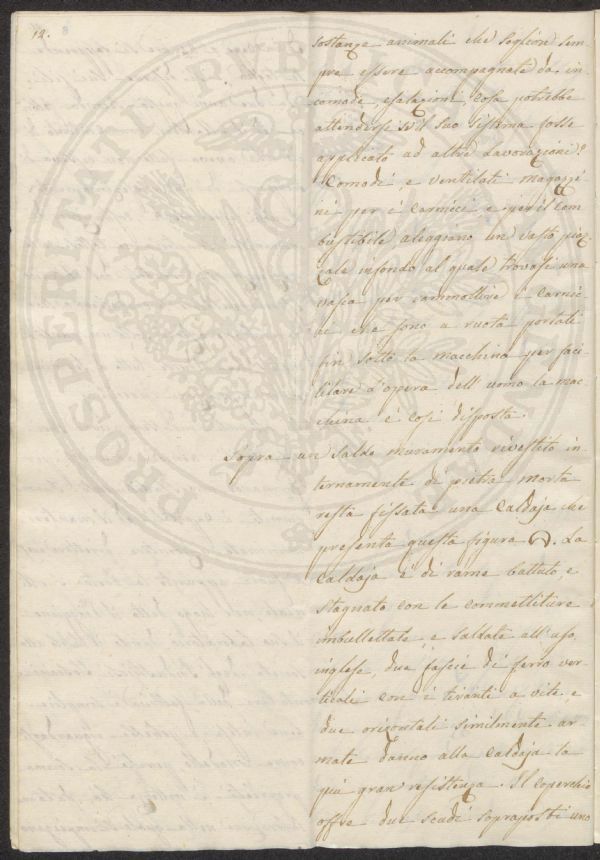 12.
sostanze animali che soglion sem-
pre essere accompagnate da in-
comode esalazioni, cosa potrebbe
attendersi se il suo sistema fosse
applicato ad altre Lavorazioni?
Comodi, e ventilati magazzi
ni per i carnicci e per il com
bustibile aleggiano un vasto piaz-
zale infondo al quale trovasi una
vasca per rammollire i carnic-
ci che sono a ruota portati
fin sotto la macchina per faci-
litare l'opera dell'uomo la mac-
china è così disposta.
Sopra un saldo muramento rivestito in-
ternamente di pietra morta
resta fissata una Caldaja che
presenta questa figura. La
Caldaja è di rame battuto, e
stagnato con le commettiture
imbullettate e saldate all'uso
inglese, due fascie di ferro ver-
ticali con i tiranti a vite, e
due orizontali similmente ar-
mate danno alla Caldaja la
più gran resistenza. Il coperchio
offre due scudi sopraposti uno
PROSPERITATI PUBLICAE